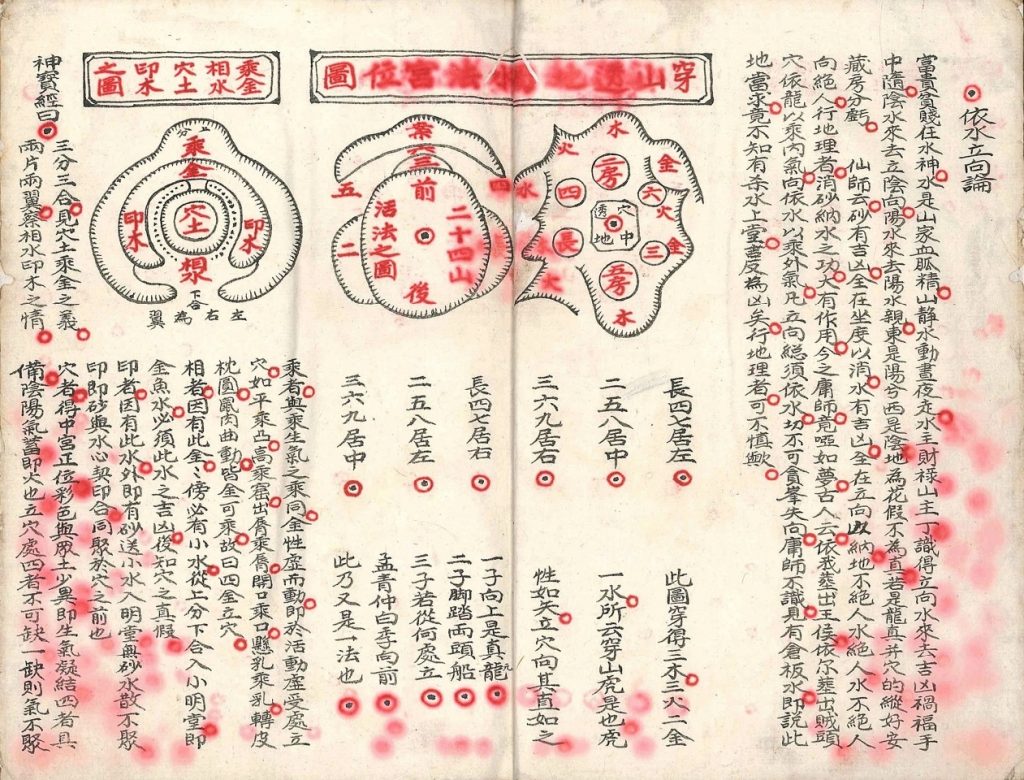 依水立向論
富貴貧賤在水神水是山家血脈精山靜水動晝夜定水主財祿山主丁識得立向水來去吉凶禍福手
中隨陰水來去立陰向陽水來去陽水親東是陽兮西是陰地為花假不為真若是龍真并穴的縱好安
藏房分虧　仙師云砂有吉凶全在坐度以消水有吉凶全在立向以納地不絕人水絕人水不絕人
向絕人行地理者消砂納水之功大有作用今之庸師竟啞如夢古人云依我葬出王侯依尔葬出賊頭
穴依龍以乘內氣向依水以乘外氣凡立向總須依水切不可貪峯失向庸師不識見有倉板水即說此
地當求竟不知有杀水上堂反為凶矣行地理者可不慎歟
穿山透地水法宮位圖
水
火
金
二房
四
六
水
火
穴
透
中
地
長
三
金
五房
水
長四七居左
二五八居中
三六九居右
此圖穿得三木三火二金
一水所云穿山虎是也虎
性如矢立穴向其直如之
前
二十四山
活法之圖
後
五
二
四
長四七居右
二五八居左
三六九居中
一子向上是真龍
二子脚踏兩頭船
三子若從何處立
孟青仲白季向前
此乃又是一法也
乘金相水穴土印木之圖
上分
乘金
穴土
印木
印木
相水
下合
左右為翼
神寶經曰
三分三合見穴土乘金之義
兩片兩翼察相水印木之情
乘者與乘生氣之乘同金性虛而動即於活動虛受處立
穴如平乘凸高乘窩出脣乘脣開口乘口懸乳乘乳轉皮
枕圓鳳肉曲動皆金可乘故曰四金立穴
相者因有此金傍必有小水從上分下合入小明堂即
金魚水必須此水之吉凶後知穴之真假
印者因有此水外即有砂送小水入明堂無砂水散不聚
印即砂與水心契印合同聚於穴之前也
穴者得中宮正位彩色與厥土少異即生氣凝結四者具
備陰陽氣蓄即火也立穴處四者不可缺一缺則氣不聚